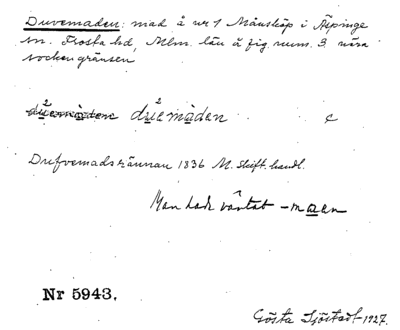 Duvemaden: mad å nr 1 Månstorp i Äspinge
sn. Frosta hd, Mlm. län å fig. num. 3. nära
sockengränsen
dŭemaden c
Drufvemadsrännan 1836 M. Skift. handl.
Man hade väntat -maen
Nr 5943.
Gösta Sjöstedt 1927.